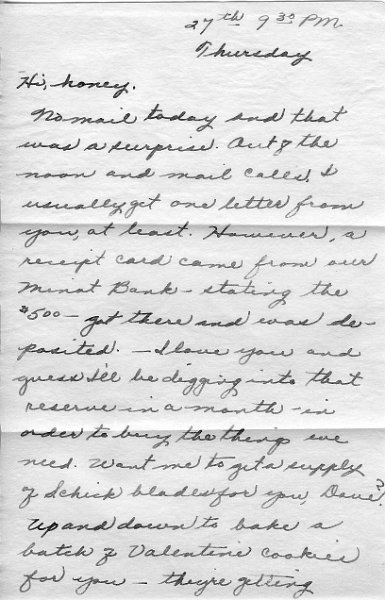 27th 9 30 P.M.
Thursday
Hi, honey.
No mail today and that
was a surprise. Out of the
noon and mail calls, I
usually get one letter from
you, at least. However, a
receipt card came from our
Minot Bank - stating the
$500 - got there and was de-
posited. - I love you and
guess I'll be digging into that
reserve in a month - in
order to buy the things we
need. Want me to get a supply
of Schick blades for you, Dave?
Up and down to bake a
batch of Valentine cookies
for you - they're getting